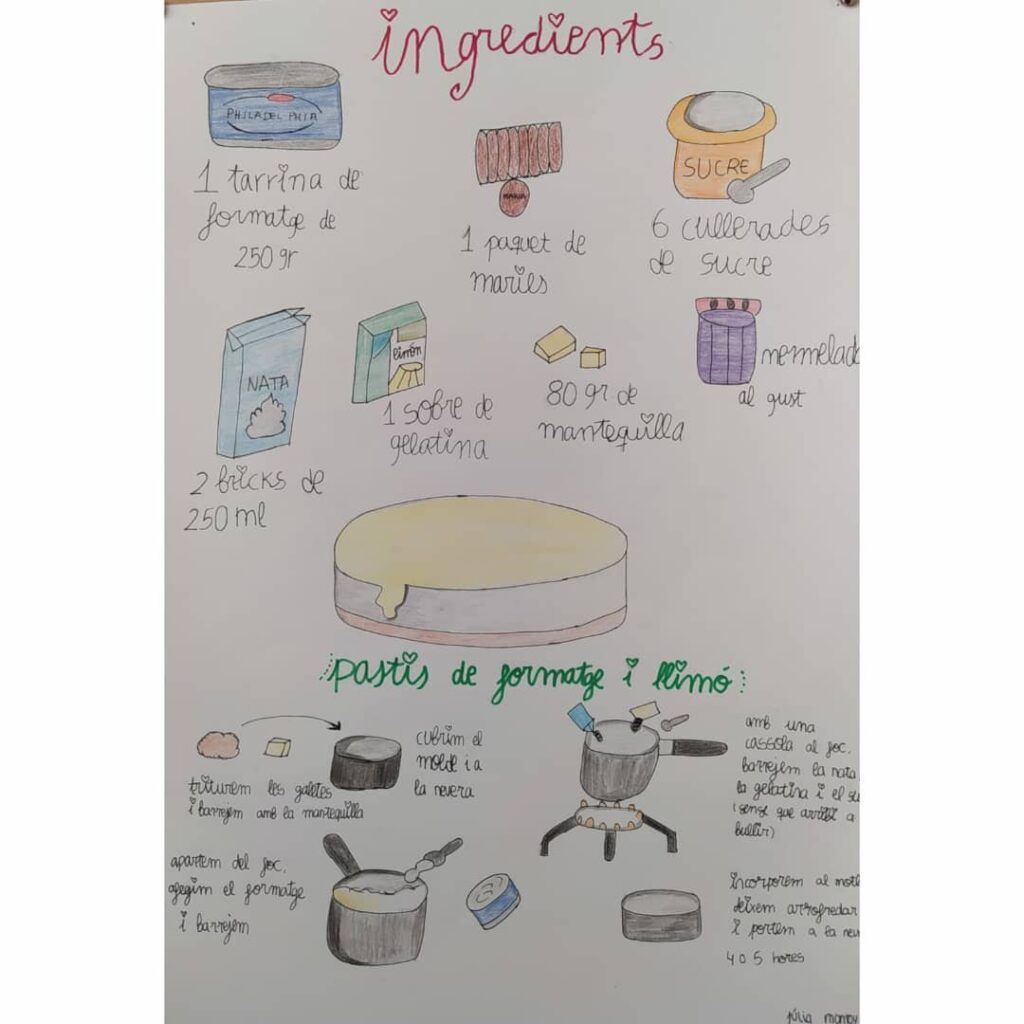 ingredients
PHILADELPHIA
1 tarrina de
formatge de
250 gr
MARIA
1 paquet de
maries
SUCRE
6 cullerades
de sucre
NATA
2 bricks de
250 ml
limón
1 sobre de
gelatina
80 gr de
mantequilla
mermelada
al gust
pastís de formatge i llimó
triturem les galetes
i barrejem amb la mantequilla
cubrim el
molde i a
la nevera
amb una
cassola al foc,
barrejem la nata
la gelatina i el
(sense que arribi a
bullir)
apartem del foc,
afegim el formatge
i barrejem
incorporem al
deixem arrofredar
i portem a la
4 o 5 hores
júlia